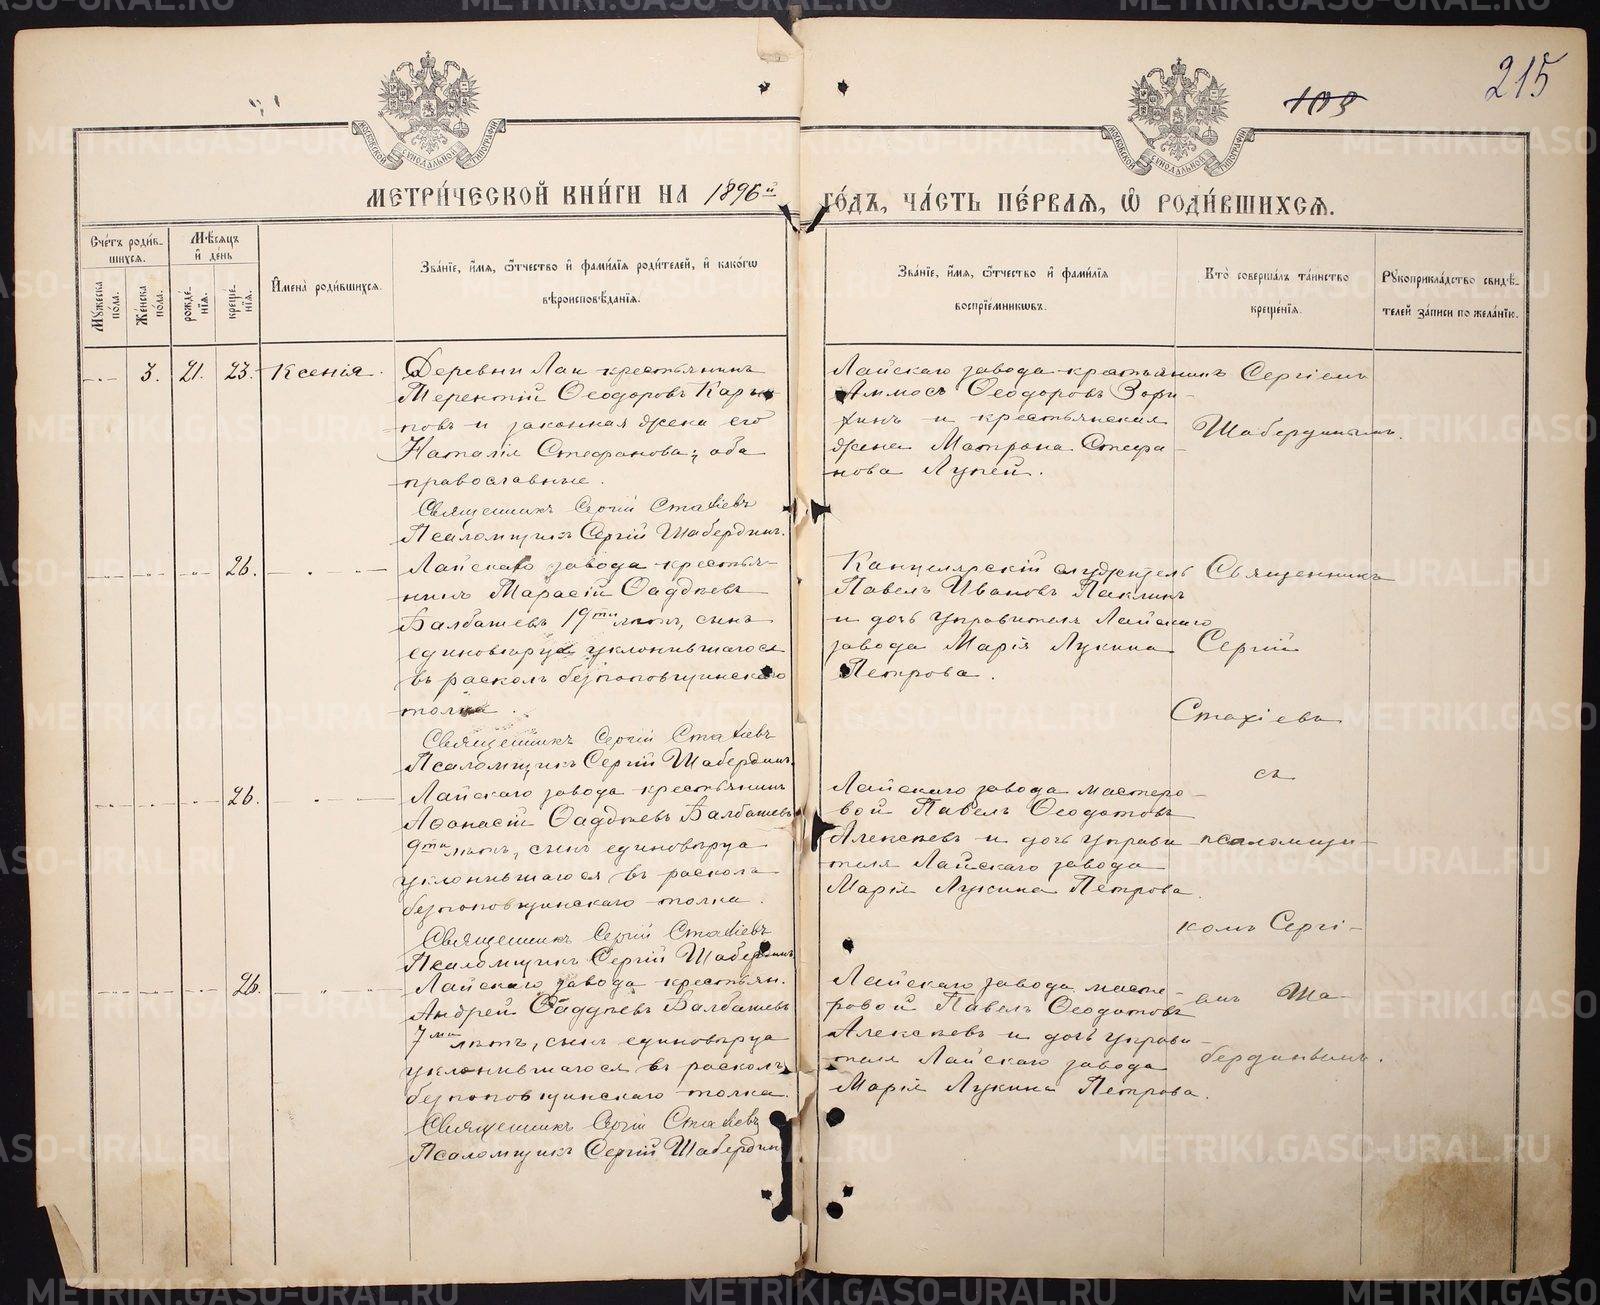 215
103
МЕТРИ́ЧЕСКОЙ КНИ́ГИ НА 1896й ГО́ДЪ, ЧА́СТЬ ПЕ́РВАЯ, Ѡ҆ РОДИ́ВШИХСЯ.
МОСКОВСКОЙ СѴНОДАЛЬНОЙ ТИПОГРАФІИ
МОСКОВСКОЙ СѴНОДАЛЬНОЙ ТИПОГРАФІИ
Сче́тъ роди́в-
шихся.
Мѣ́сяцъ
и҆ де́нь
Мꙋ́жеска по́ла.
Же́нска по́ла.
рожде́-нїя.
креще́-нїя.
И҆мена̀ роди́вшихся.
Зва́нїе, и҆́мя, ѻ҆́тчество и҆ фами́лїя роди́телей, и҆ како́гѡ
вѣроисповѣ́данїя.
Зва́нїе, и҆́мя, ѻ҆́тчество и҆ фами́лїя
воспрїе́мниковъ.
Кто̀ соверша́лъ та́инство
креще́нїя.
Рꙋкоприкла́дство свидѣ́-
телей за́писи по жела́нїю.
3. 21. 23. Ксенія.
Деревни Лаи крестьянинъ
Терентій Ѳеодоровъ Карь-
повъ и законная жена его
Наталія Стефанова; оба
православные.
Священникъ Сергій Стахіевъ
Псаломщикъ Сергій Шабердинъ.
Лайскаго завода крестьянинъ
Аммосъ Ѳеодоровъ Зори-
хинъ и крестьянская
жена Матрона Стефа-
нова Лупей.
Сергіемъ
Шабердинымъ.
26. "
Лайскаго завода крестья-
нинъ Тарасій Ѳаддѣевъ
Балбашевъ 19ти лѣтъ, сынъ
единовѣрца уклонившагося
въ расколъ безпоповщинскаго
толка.
Священникъ Сергій Стахіевъ
Псаломщикъ Сергій Шабердинъ.
Канцелярскій служитель
Павелъ Ивановъ Паклинъ
и дочь управителя Лайскаго
завода Марія Лукина
Петрова.
Священникъ
Сергій
Стахіевъ
съ
псаломщи-
комъ Сергі-
емъ Ша-
бердинымъ.
26. "
Лайскаго завода крестьянинъ
Аѳанасій Ѳаддѣевъ Балбашевъ
9ти лѣтъ, сынъ единовѣрца
уклонившагося въ раскола
безпоповщинскаго толка.
Священникъ Сергій Стахіевъ
Псаломщикъ Сергій Шабердинъ
Лайскаго завода мастеро-
вой Павелъ Ѳеодотовъ
Алексѣевъ и дочь управи
теля Лайскаго завода
Марія Лукина Петрова.
26. "
Лайскаго завода крестьян.
Андрей Ѳаддѣевъ Балбашевъ
7ми лѣтъ, сынъ единовѣрца
уклонившагося въ расколъ
безпоповщинскаго толка.
Священникъ Сергій Стахіевъ
Псаломщикъ Сергій Шабердинъ
Лайскаго завода масте-
ровой Павелъ Ѳеодотовъ
Алексѣевъ и дочь управи-
теля Лайскаго завода
Марія Лукина Петрова.
METRIKI.GASO-URAL.RU